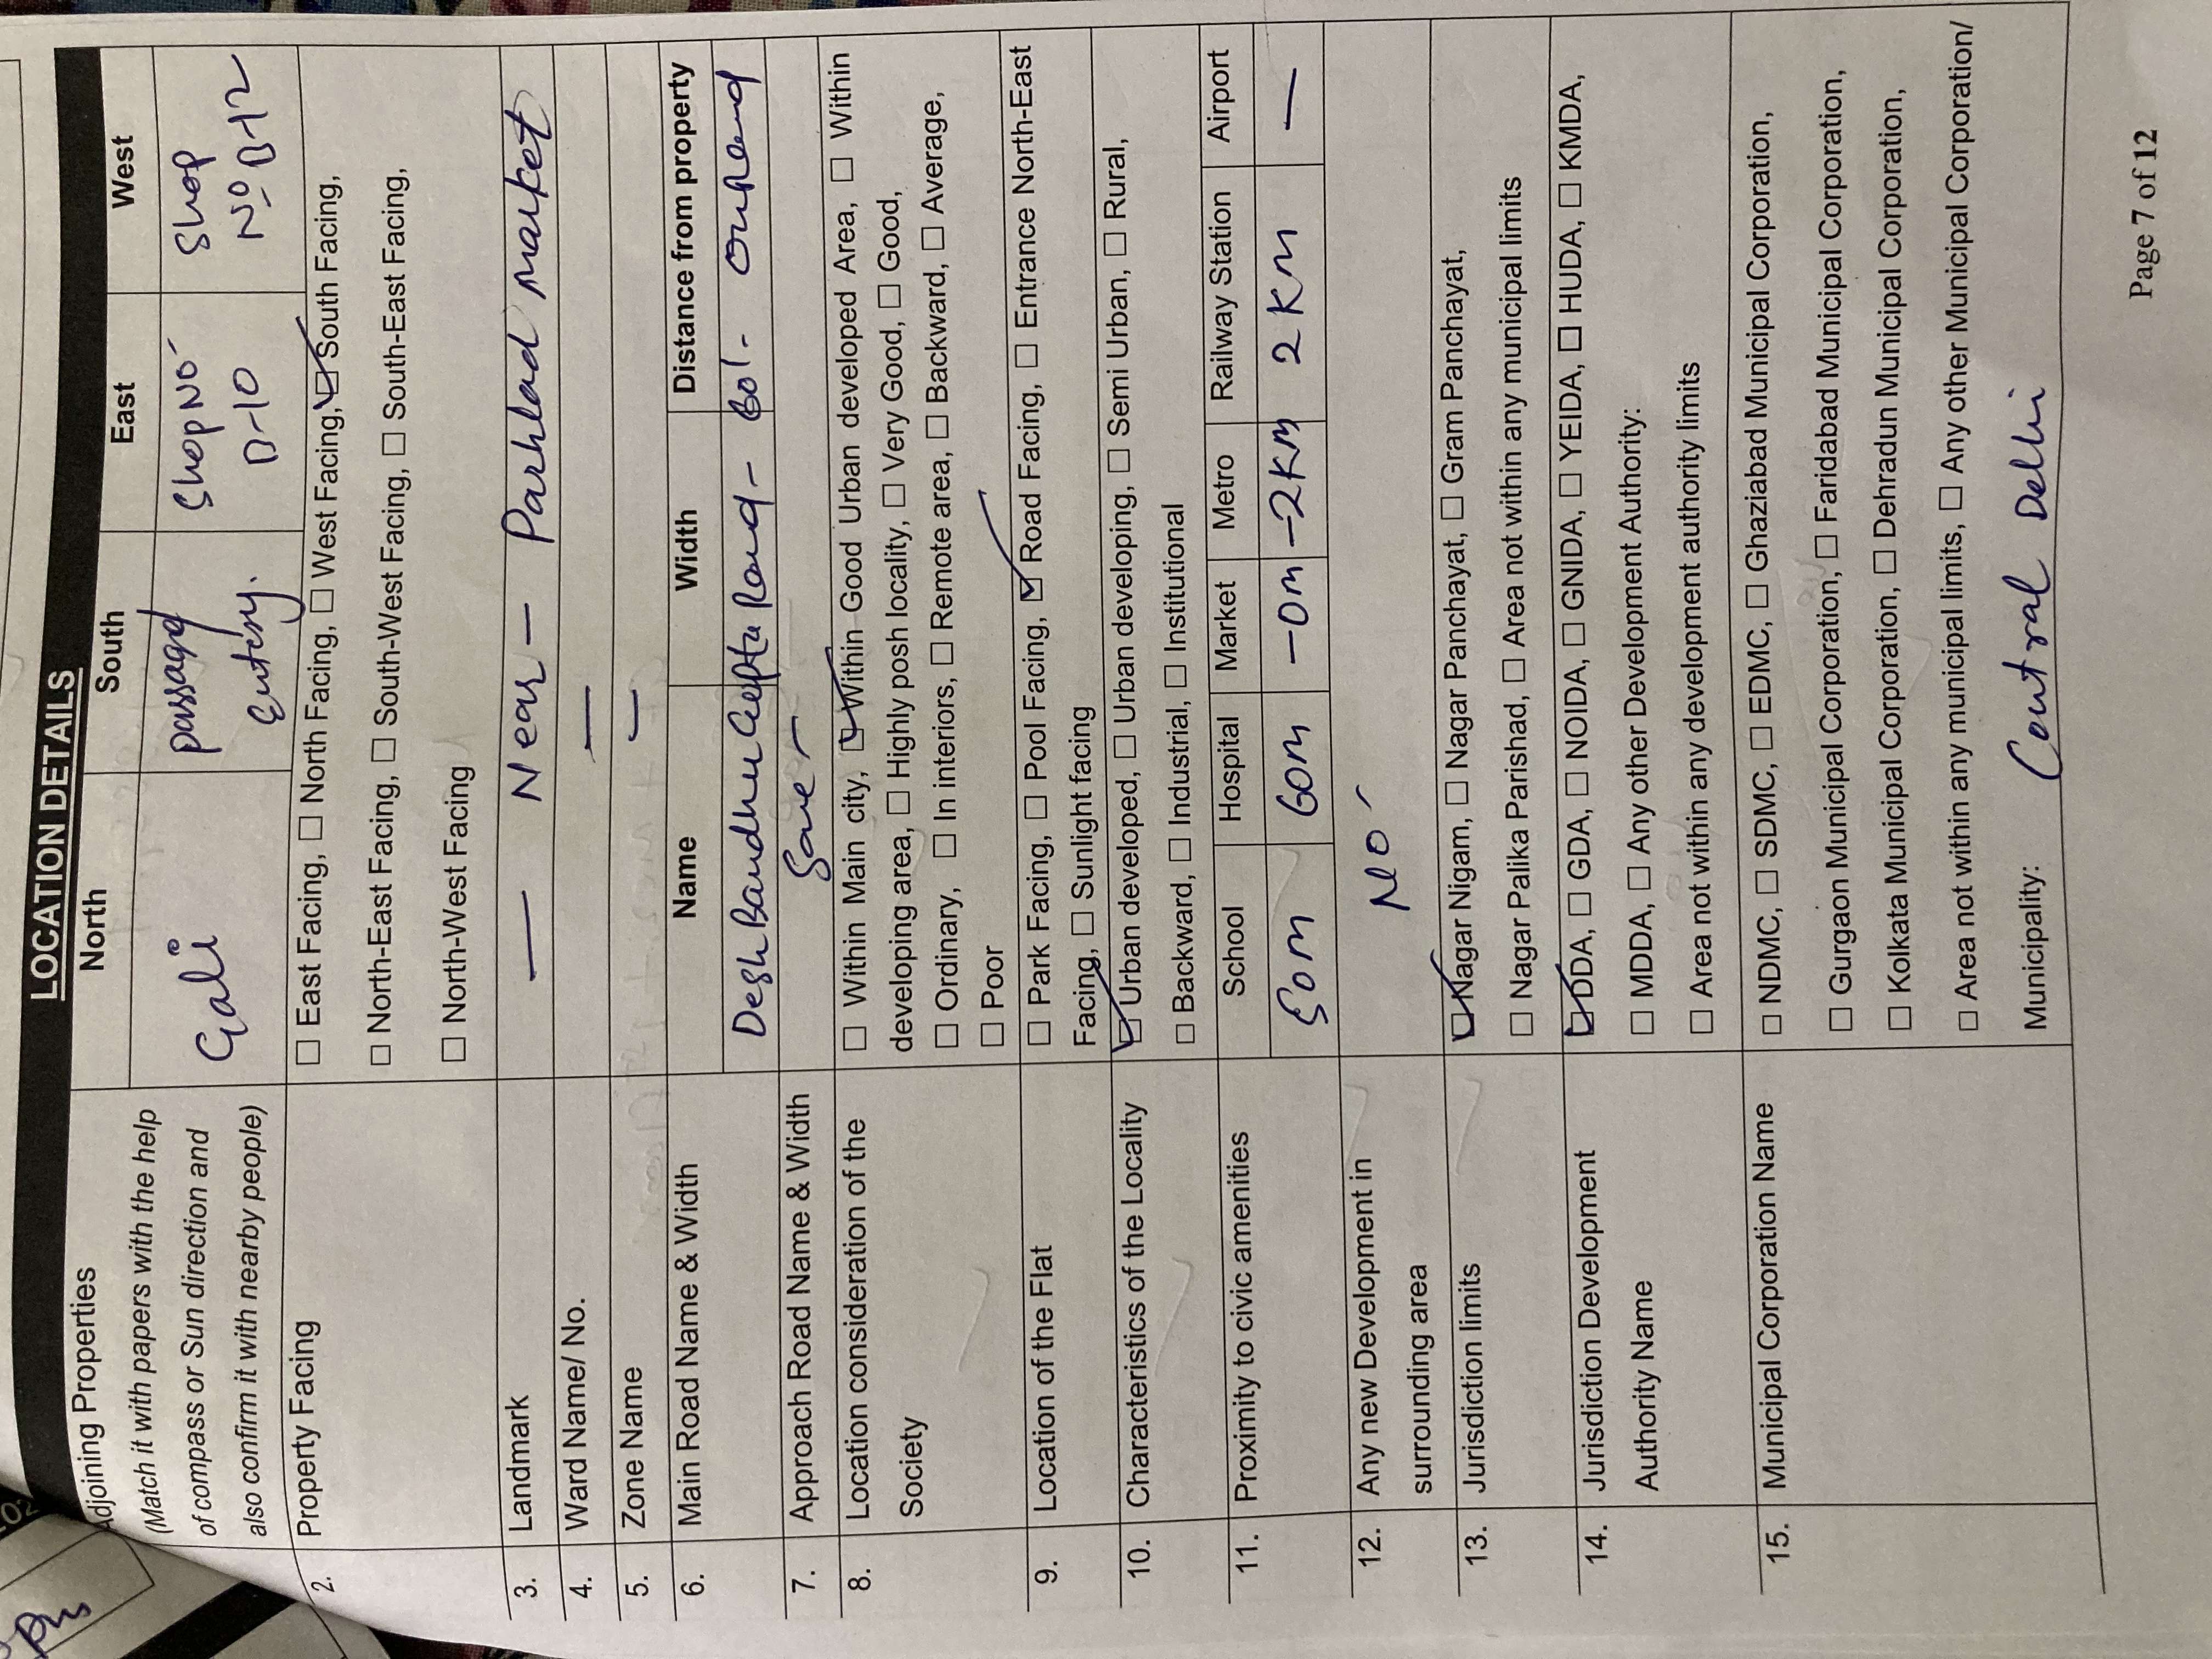 LOCATION DETAILS
Adjoining Properties
(Match it with papers with the help
of compass or Sun direction and
also confirm it with nearby people)
North South East West
Gali passage Shop No Shop
Entery. D-10 No D-12
2. Property Facing
☐ East Facing, ☐ North Facing, ☐ West Facing, ☑ South Facing,
☐ North-East Facing, ☐ South-West Facing, ☐ South-East Facing,
☐ North-West Facing
3. Landmark — Near — Parhlad market
4. Ward Name/ No. —
5. Zone Name —
6. Main Road Name & Width
Name Width Distance from property
Desh Bandhu Gupta Road - 60'.
7. Approach Road Name & Width Same -
8. Location consideration of the
Society
☐ Within Main city, ☑ Within Good Urban developed Area, ☐ Within
developing area, ☐ Highly posh locality, ☐ Very Good, ☐ Good,
☐ Ordinary, ☐ In interiors, ☐ Remote area, ☐ Backward, ☐ Average,
☐ Poor
9. Location of the Flat
☐ Park Facing, ☐ Pool Facing, ☑ Road Facing, ☐ Entrance North-East
Facing, ☐ Sunlight facing
10. Characteristics of the Locality
☑ Urban developed, ☐ Urban developing, ☐ Semi Urban, ☐ Rural,
☐ Backward, ☐ Industrial, ☐ Institutional
11. Proximity to civic amenities
School Hospital Market Metro Railway Station Airport
50m 60m -0m -2KM 2KM —
12. Any new Development in
surrounding area
NO
13. Jurisdiction limits
☑ Nagar Nigam, ☐ Nagar Panchayat, ☐ Gram Panchayat,
☐ Nagar Palika Parishad, ☐ Area not within any municipal limits
14. Jurisdiction Development
Authority Name
☑ DDA, ☐ GDA, ☐ NOIDA, ☐ GNIDA, ☐ YEIDA, ☐ HUDA, ☐ KMDA,
☐ MDDA, ☐ Any other Development Authority:
☐ Area not within any development authority limits
15. Municipal Corporation Name
☐ NDMC, ☐ SDMC, ☐ EDMC, ☐ Ghaziabad Municipal Corporation,
☐ Gurgaon Municipal Corporation, ☐ Faridabad Municipal Corporation,
☐ Kolkata Municipal Corporation, ☐ Dehradun Municipal Corporation,
☐ Area not within any municipal limits, ☐ Any other Municipal Corporation/
Municipality: Central Delhi
Page 7 of 12